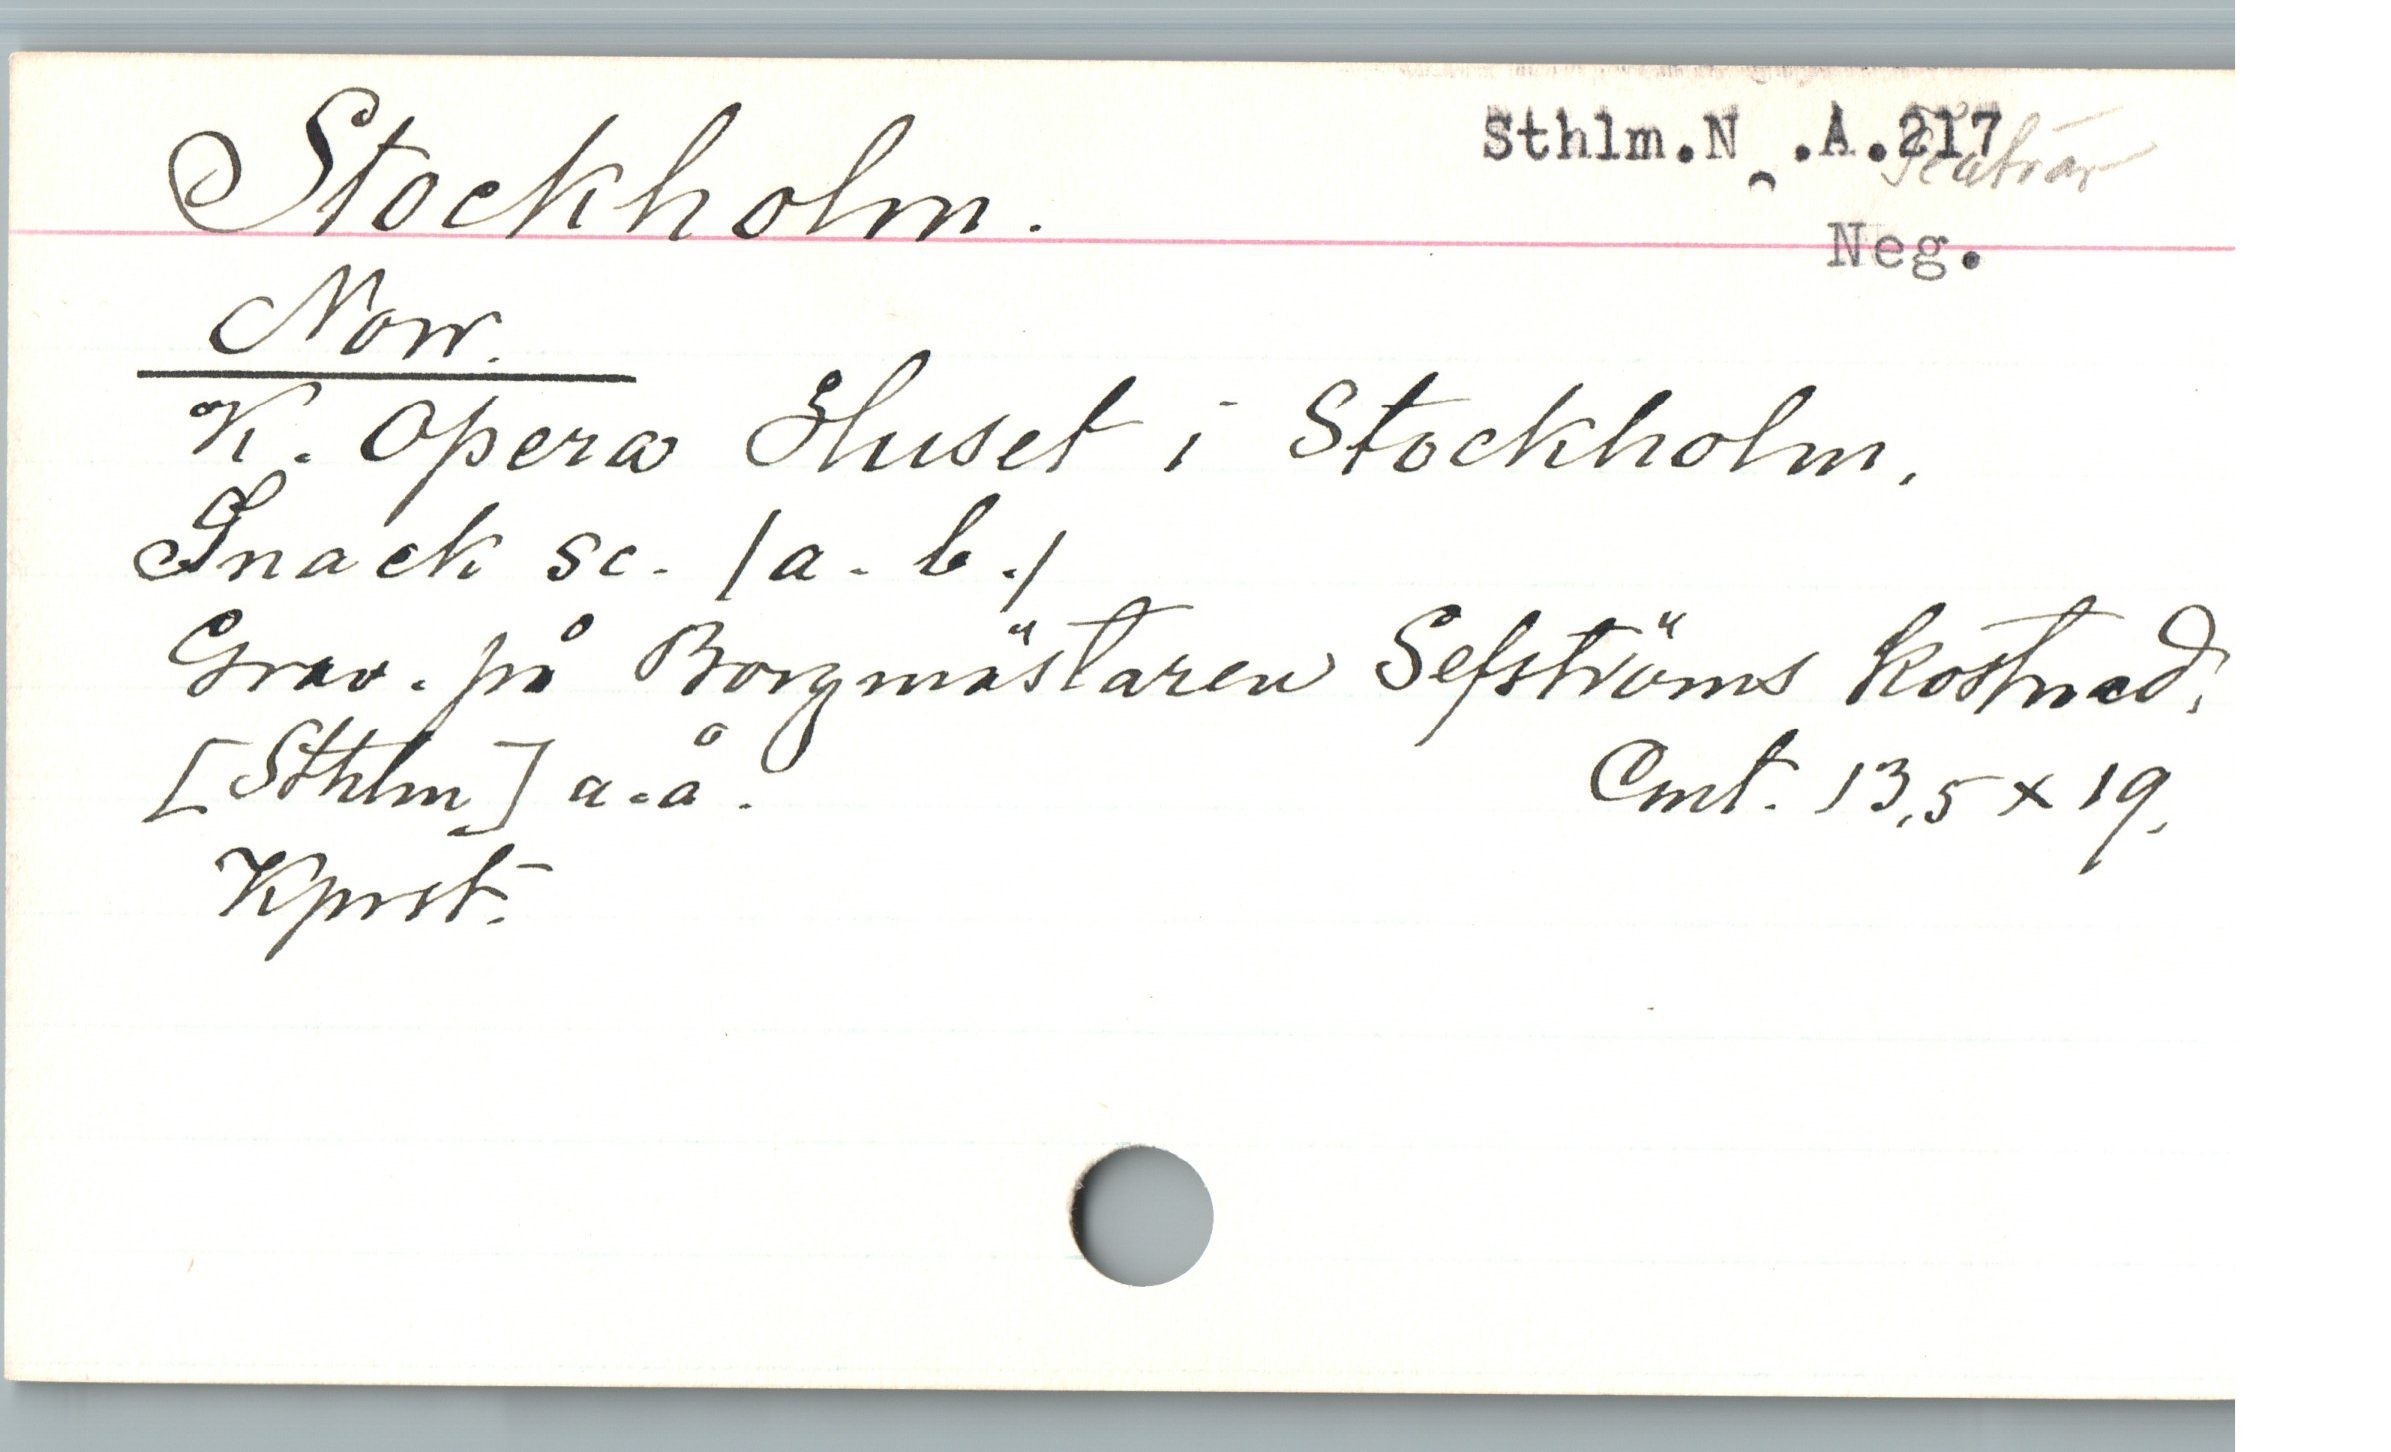 Stockholm.
Sthlm.N .A.217
Teatrar
Neg.
Norr.
K. Opera Huset i Stockholm.
Snack sc. /a. b./
Grav. på Borgmästaren Sefströms kostnad.
[Sthlm] u. å.
Cmt. 13,5 x 19.
Kprst.